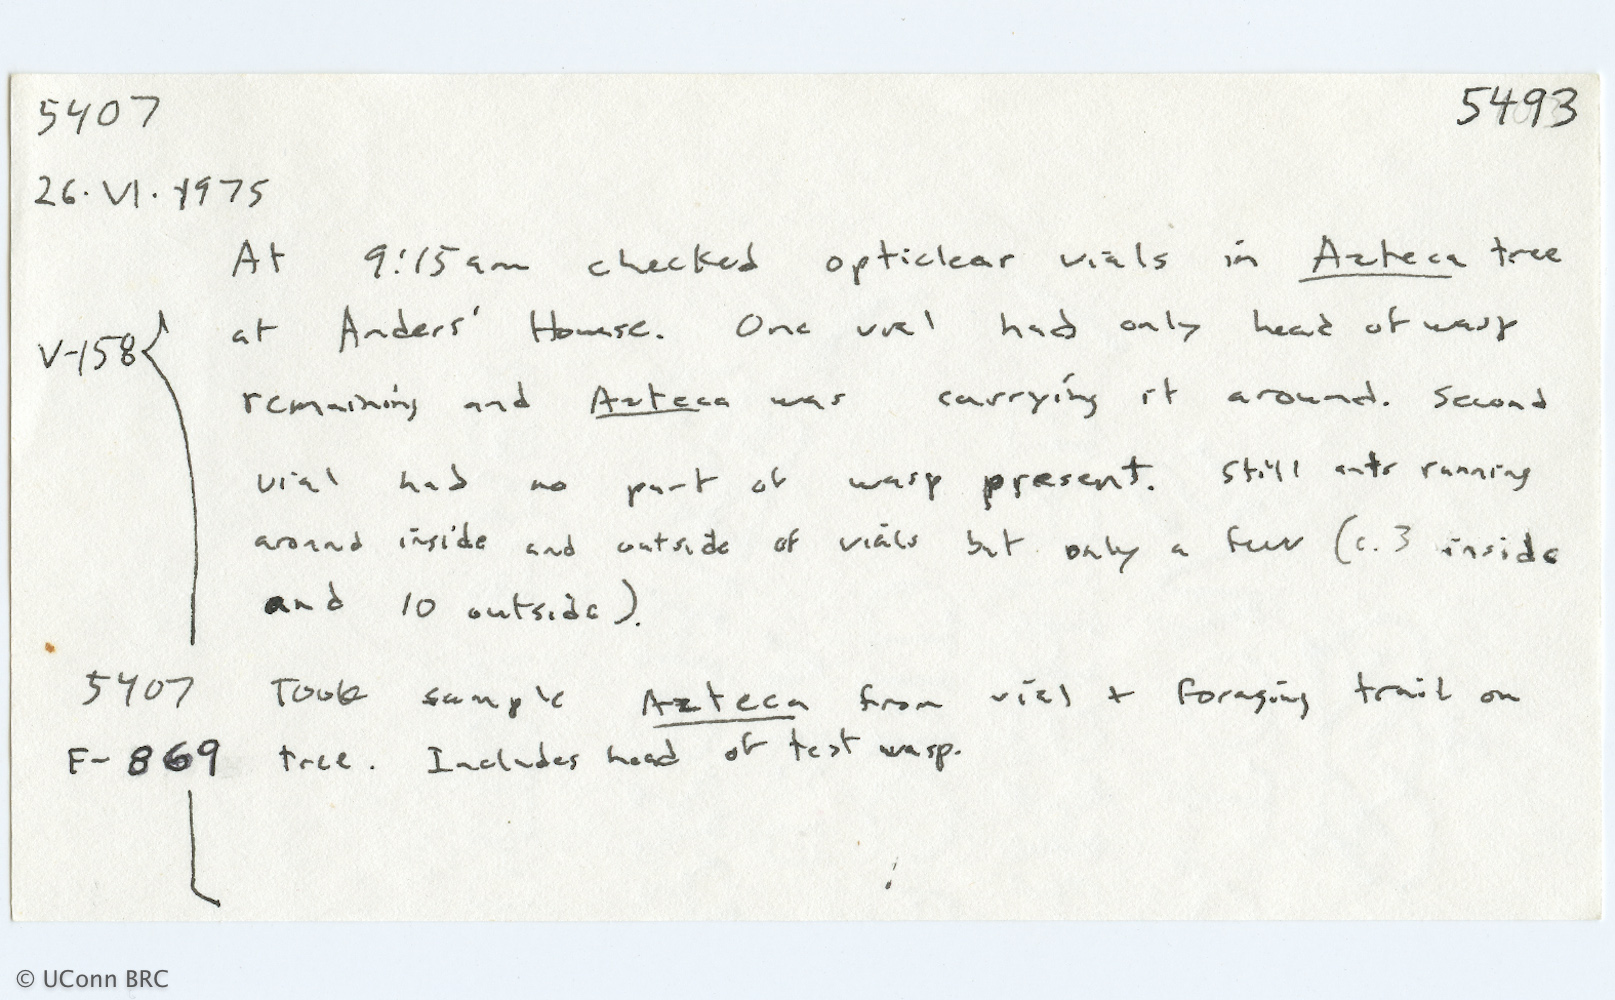 5407 5493
26.VI.1975
At 9:15am checked opticlear vials in Azteca tree
V-158 at Anders' House. One vial had only head of wasp
remaining and Azteca was carrying it around. Second
vial had no part of wasp present. Still ants running
around inside and outside of vials but only a few (c. 3 inside
and 10 outside).
5407 Took sample Azteca from vial + foraging trail on
F-869 tree. Includes head of test wasp.
© UConn BRC